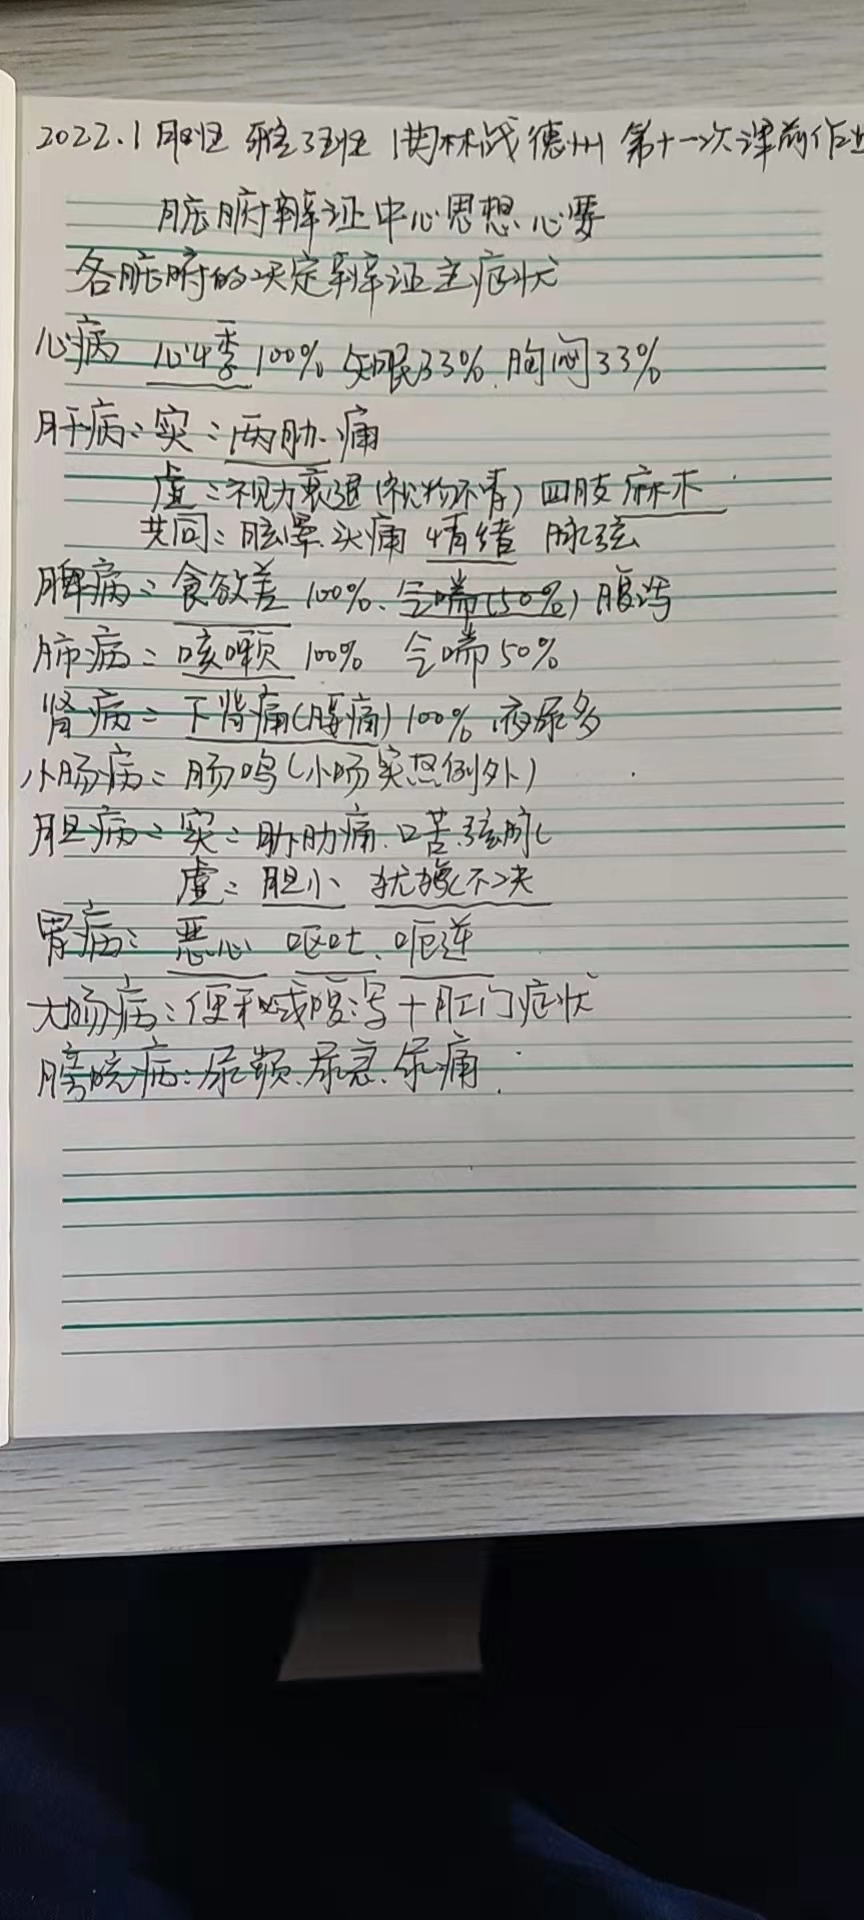 2022.1 月班 班 洪林战 德州 第十一次课前作业
脏腑辩证中心思想心要
各脏腑的决定辩证主症状
心病 心悸100% 失眠33%.胸闷33%
肝病:实:两肋.痛
虚:视力衰退(视物不清) 四肢麻木
共同:眩晕.头痛 情绪 脉弦
脾病:食欲差 100%. 腹泻
肺病:咳嗽 100% 会喘50%
肾病:下背痛(腰痛)100% 夜尿多
小肠病:肠鸣(小肠实热例外)
胆病:实:胁肋痛.口苦.弦脉
虚:胆小 犹豫不决
胃病:恶心 呕吐.呃逆
大肠病:便秘或腹泻+肛门症状
膀胱病:尿频.尿急.尿痛